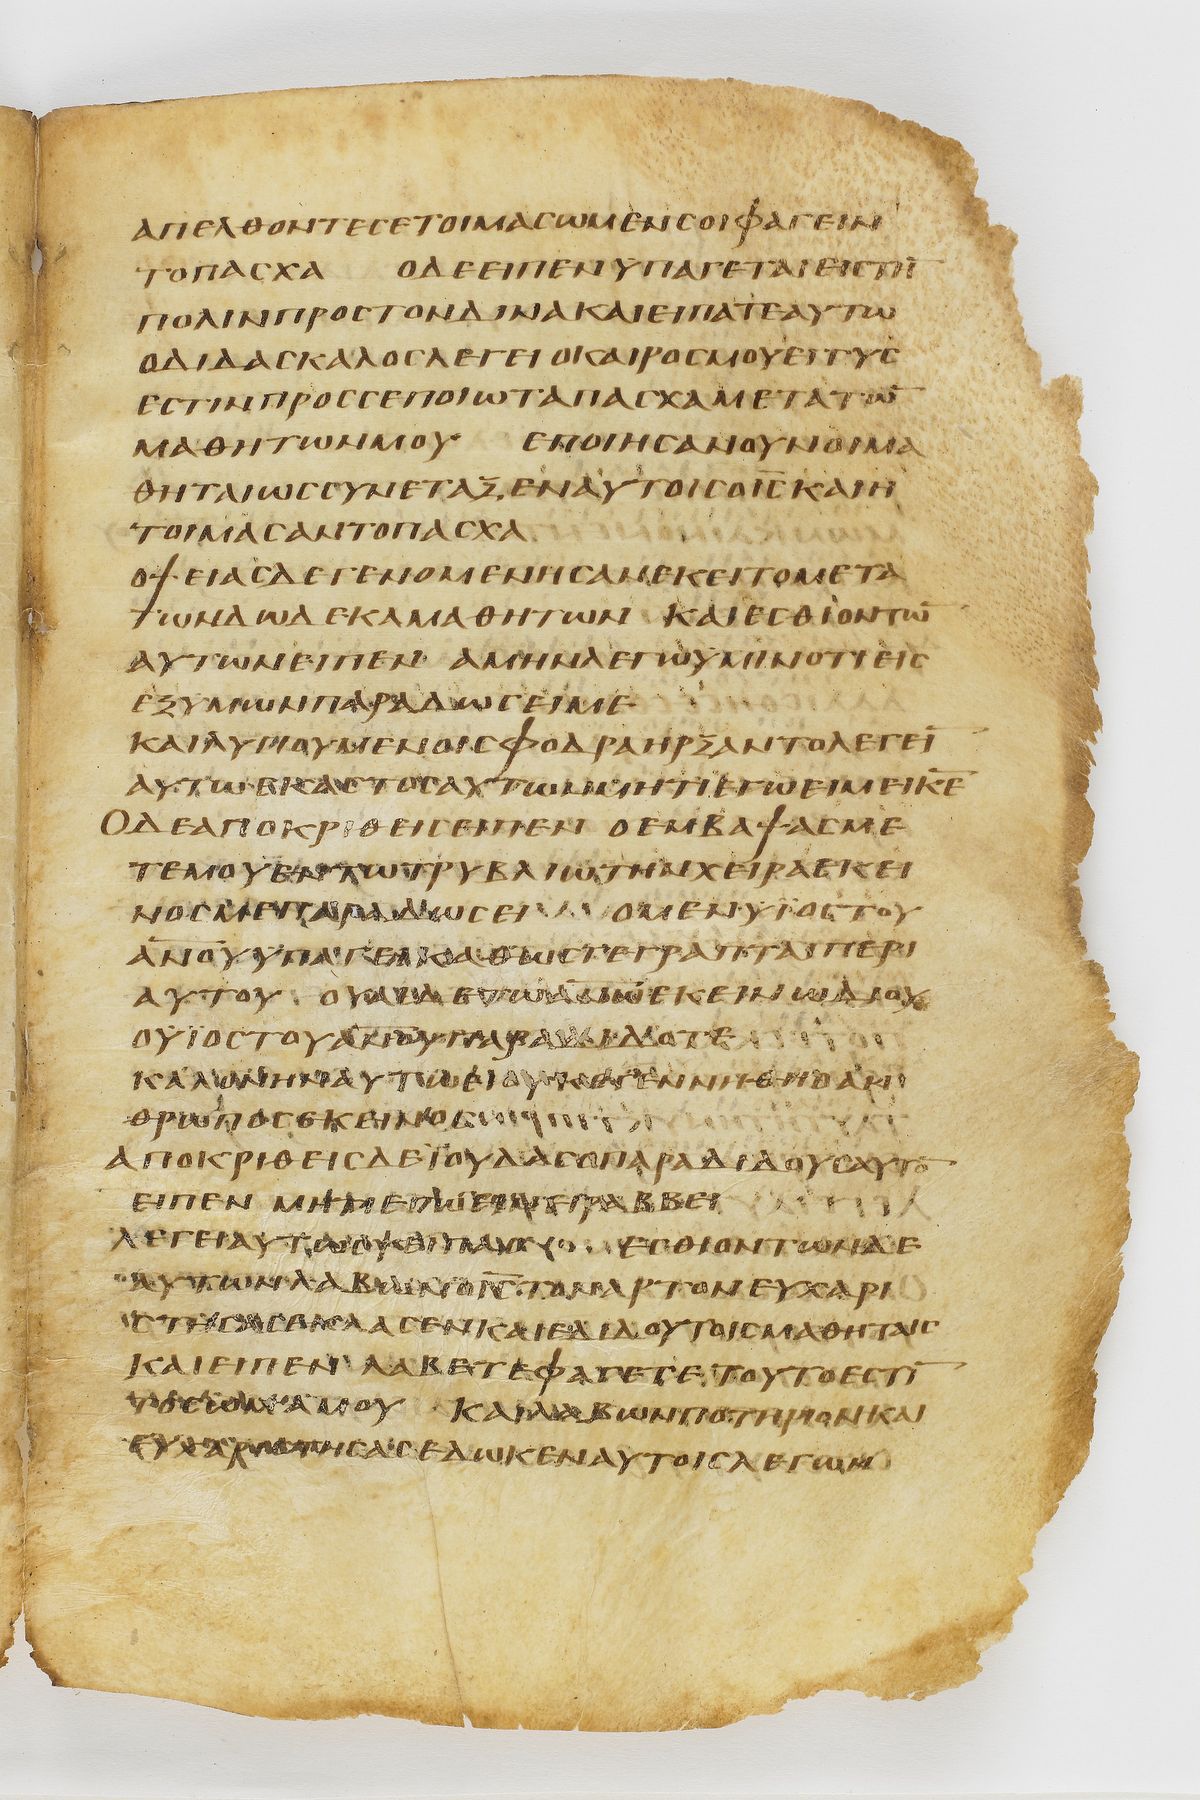 ΑΠΕΛΘΟΝΤΕСΕΤΟΙΜΑСΩΜΕΝСΟΙΦΑΓΕΙΝ
ΤΟΠΑСΧΑ ΟΔΕΕΙΠΕΝΥΠΑΓΕΤΑΙΕΙСΤΗ̅
ΠΟΛΙΝΠΡΟСΤΟΝΔΙΝΑΚΑΙΕΙΠΑΤΕΑΥΤΩ
ΟΔΙΔΑСΚΑΛΟСΛΕΓΕΙΟΚΑΙΡΟСΜΟΥΕΓΓΥС
ΕСΤΙΝΠΡΟССΕΠΟΙΩΤΑΠΑСΧΑΜΕΤΑΤΩ̅
ΜΑΘΗΤΩΝΜΟΥ ΕΠΟΙΗСΑΝΟΥΝΟΙΜΑ
ΘΗΤΑΙΩССΥΝΕΤΑΞΕΝΑΥΤΟΙСΟΙ̅С̅ΚΑΙΗ
ΤΟΙΜΑСΑΝΤΟΠΑСΧΑ
ΟΨΕΙΑСΔΕΓΕΝΟΜΕΝΗСΑΝΕΚΕΙΤΟΜΕΤΑ
ΤΩΝΔΩΔΕΚΑΜΑΘΗΤΩΝ ΚΑΙΕСΘΙΟΝΤΩ̅
ΑΥΤΩΝΕΙΠΕΝ ΑΜΗΝΛΕΓΩΥΜΙΝΟΤΙΕΙС
ΕΞΥΜΩΝΠΑΡΑΔΩСΕΙΜΕ
ΚΑΙΛΥΠΟΥΜΕΝΟΙСΦΟΔΡΑΗΡΞΑΝΤΟΛΕΓΕΙ̅
ΑΥΤΩΕΚΑСΤΟСΑΥΤΩΝΜΗΤΙΕΓΩΕΙΜΕΙΚ̅Ε̅
ΟΔΕΑΠΟΚΡΙΘΕΙСΕΙΠΕΝ ΟΕΜΒΑΨΑСΜΕ
ΤΕΜΟΥΕΝΤΩΤΡΥΒΛΙΩΤΗΝΧΕΙΡΑΕΚΕΙ
ΝΟСΜΕΠΑΡΑΔΩСΕΙ ΟΜΕΝΥΙΟСΤΟΥ
Α̅Ν̅Ο̅Υ̅ΥΠΑΓΕΙΚΑΘΩСΓΕΓΡΑΠΤΑΙΠΕΡΙ
ΑΥΤΟΥ ΟΥΑΙΔΕΤΩΑ̅Ν̅Ω̅ΕΚΕΙΝΩΔΙΟΥ
ΟΥΙΟСΤΟΥΑ̅Ν̅Ο̅Υ̅ΠΑΡΑΔΙΔΟΤΕ
ΚΑΛΟΝΗΝΑΥΤΩΕΙΟΥΚΕΓΕΝΝΗΘΗΟΑΝ
ΘΡΩΠΟСΕΚΕΙΝΟС
ΑΠΟΚΡΙΘΕΙСΔΕΙΟΥΔΑСΟΠΑΡΑΔΙΔΟΥСΑΥΤΟ̅
ΕΙΠΕΝ ΜΗΤΙΕΓΩΕΙΜΕΙΡΑΒΒΕΙ
ΛΕΓΕΙΑΥΤΩСΥΕΙΠΑС ΕСΘΙΟΝΤΩΝΔΕ
ΑΥΤΩΝΛΑΒΩΝΟΙ̅С̅ΤΟΝΑΡΤΟΝΕΥΧΑΡΙ
СΤΗСΑСΕΚΛΑСΕΝΚΑΙΕΔΙΔΟΥΤΟΙСΜΑΘΗΤΑΙС
ΚΑΙΕΙΠΕΝ ΛΑΒΕΤΕΦΑΓΕΤΕΤΟΥΤΟΕСΤΙ̅
ΤΟСΩΜΑΜΟΥ ΚΑΙΛΑΒΩΝΠΟΤΗΡΙΟΝΚΑΙ
ΕΥΧΑΡΙСΤΗСΑСΕΔΩΚΕΝΑΥΤΟΙСΛΕΓΩΝ